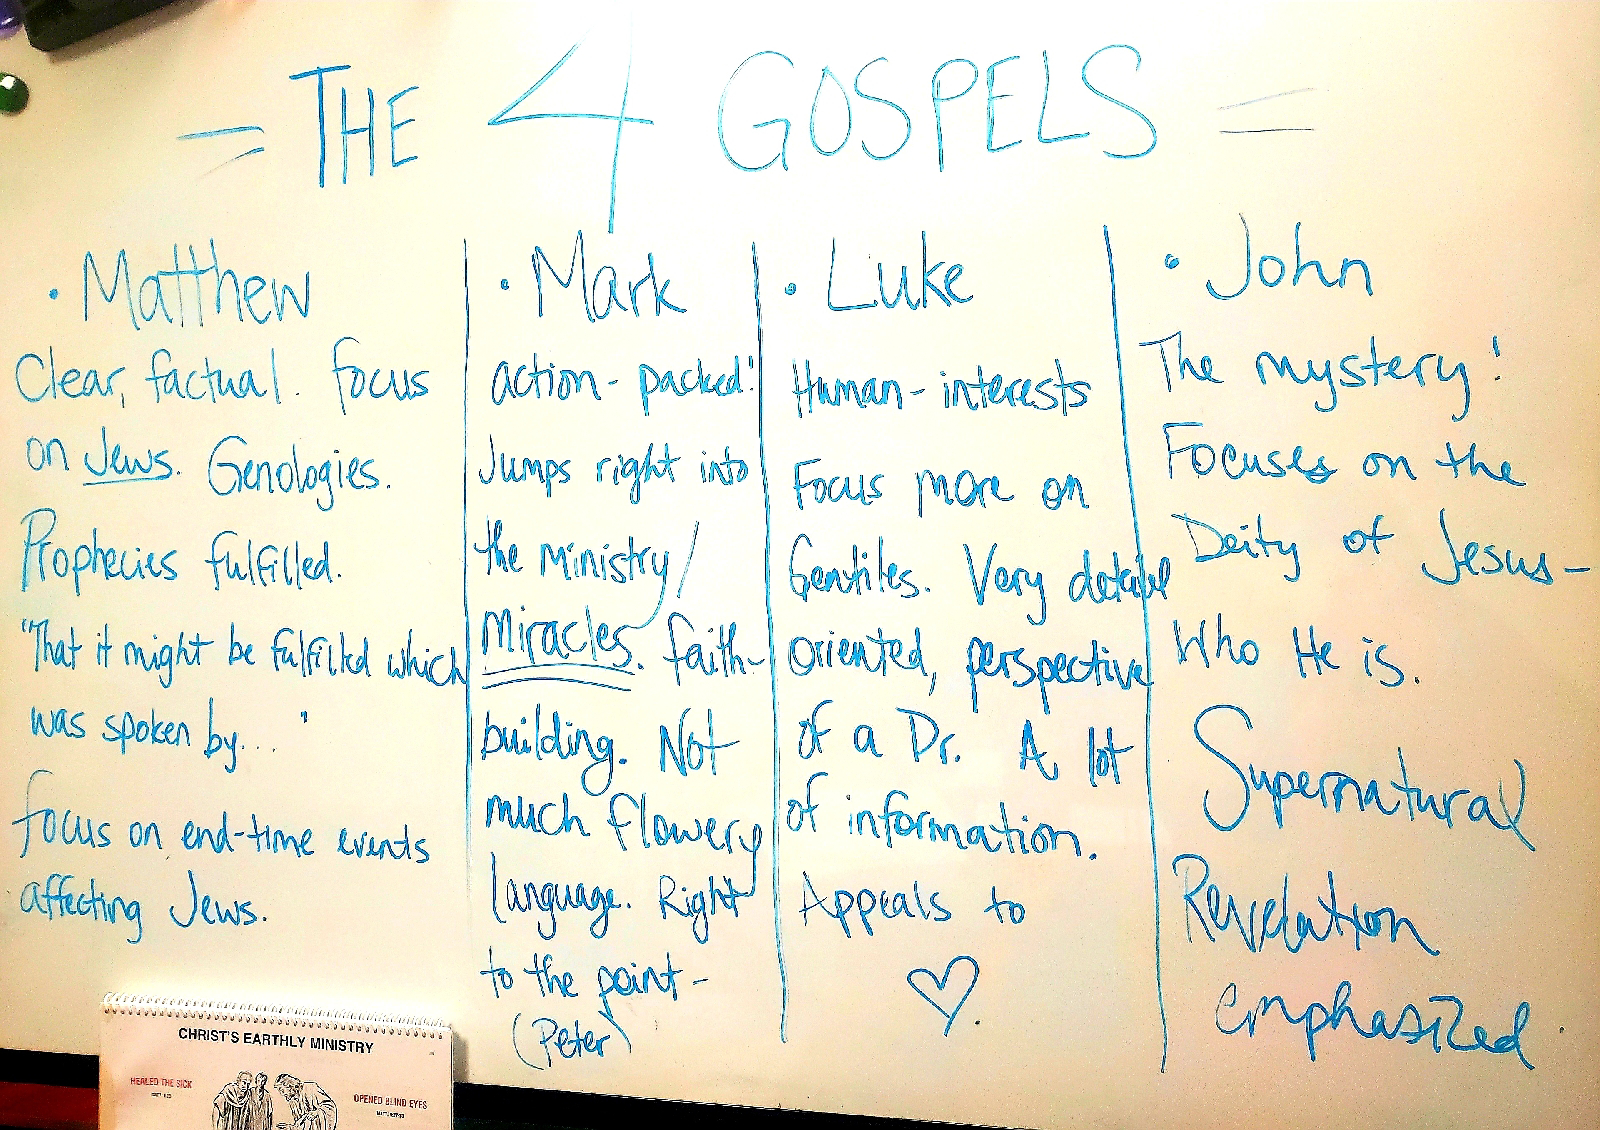 = THE 4 GOSPELS =
• Matthew
Clear, factual. Focus
on Jews. Genologies.
Prophecies fulfilled.
"That it might be fulfilled which
was spoken by...."
Focus on end-time events
affecting Jews.
• Mark
action-packed!
Jumps right into
the ministry/
Miracles. Faith-
building. Not
much flowery
language. Right
to the point-
(Peter)
• Luke
Human-interests
Focus more on
Gentiles. Very detail
oriented, perspective
of a Dr. A lot
of information.
Appeals to
♡.
• John
The mystery!
Focuses on the
Deity of Jesus-
Who He is.
Supernatural
Revelation
emphasized.
CHRIST'S EARTHLY MINISTRY
HEALED THE SICK
OPENED BLIND EYES